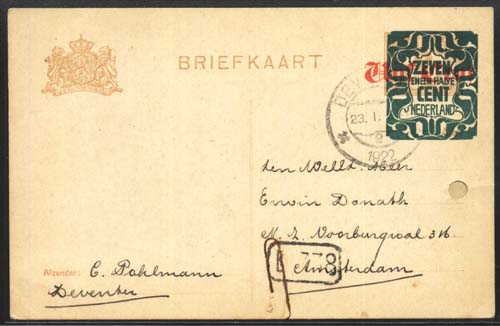 BRIEFKAART
ZEVEN
EN EEN HALVE
CENT
NEDERLAND
DEV
23. I.
1922
den Weled. Heer
Erwin Donath
N. Z. Voorburgwal 316
Amsterdam
738
Afzender: C. Pohlmann
Deventer